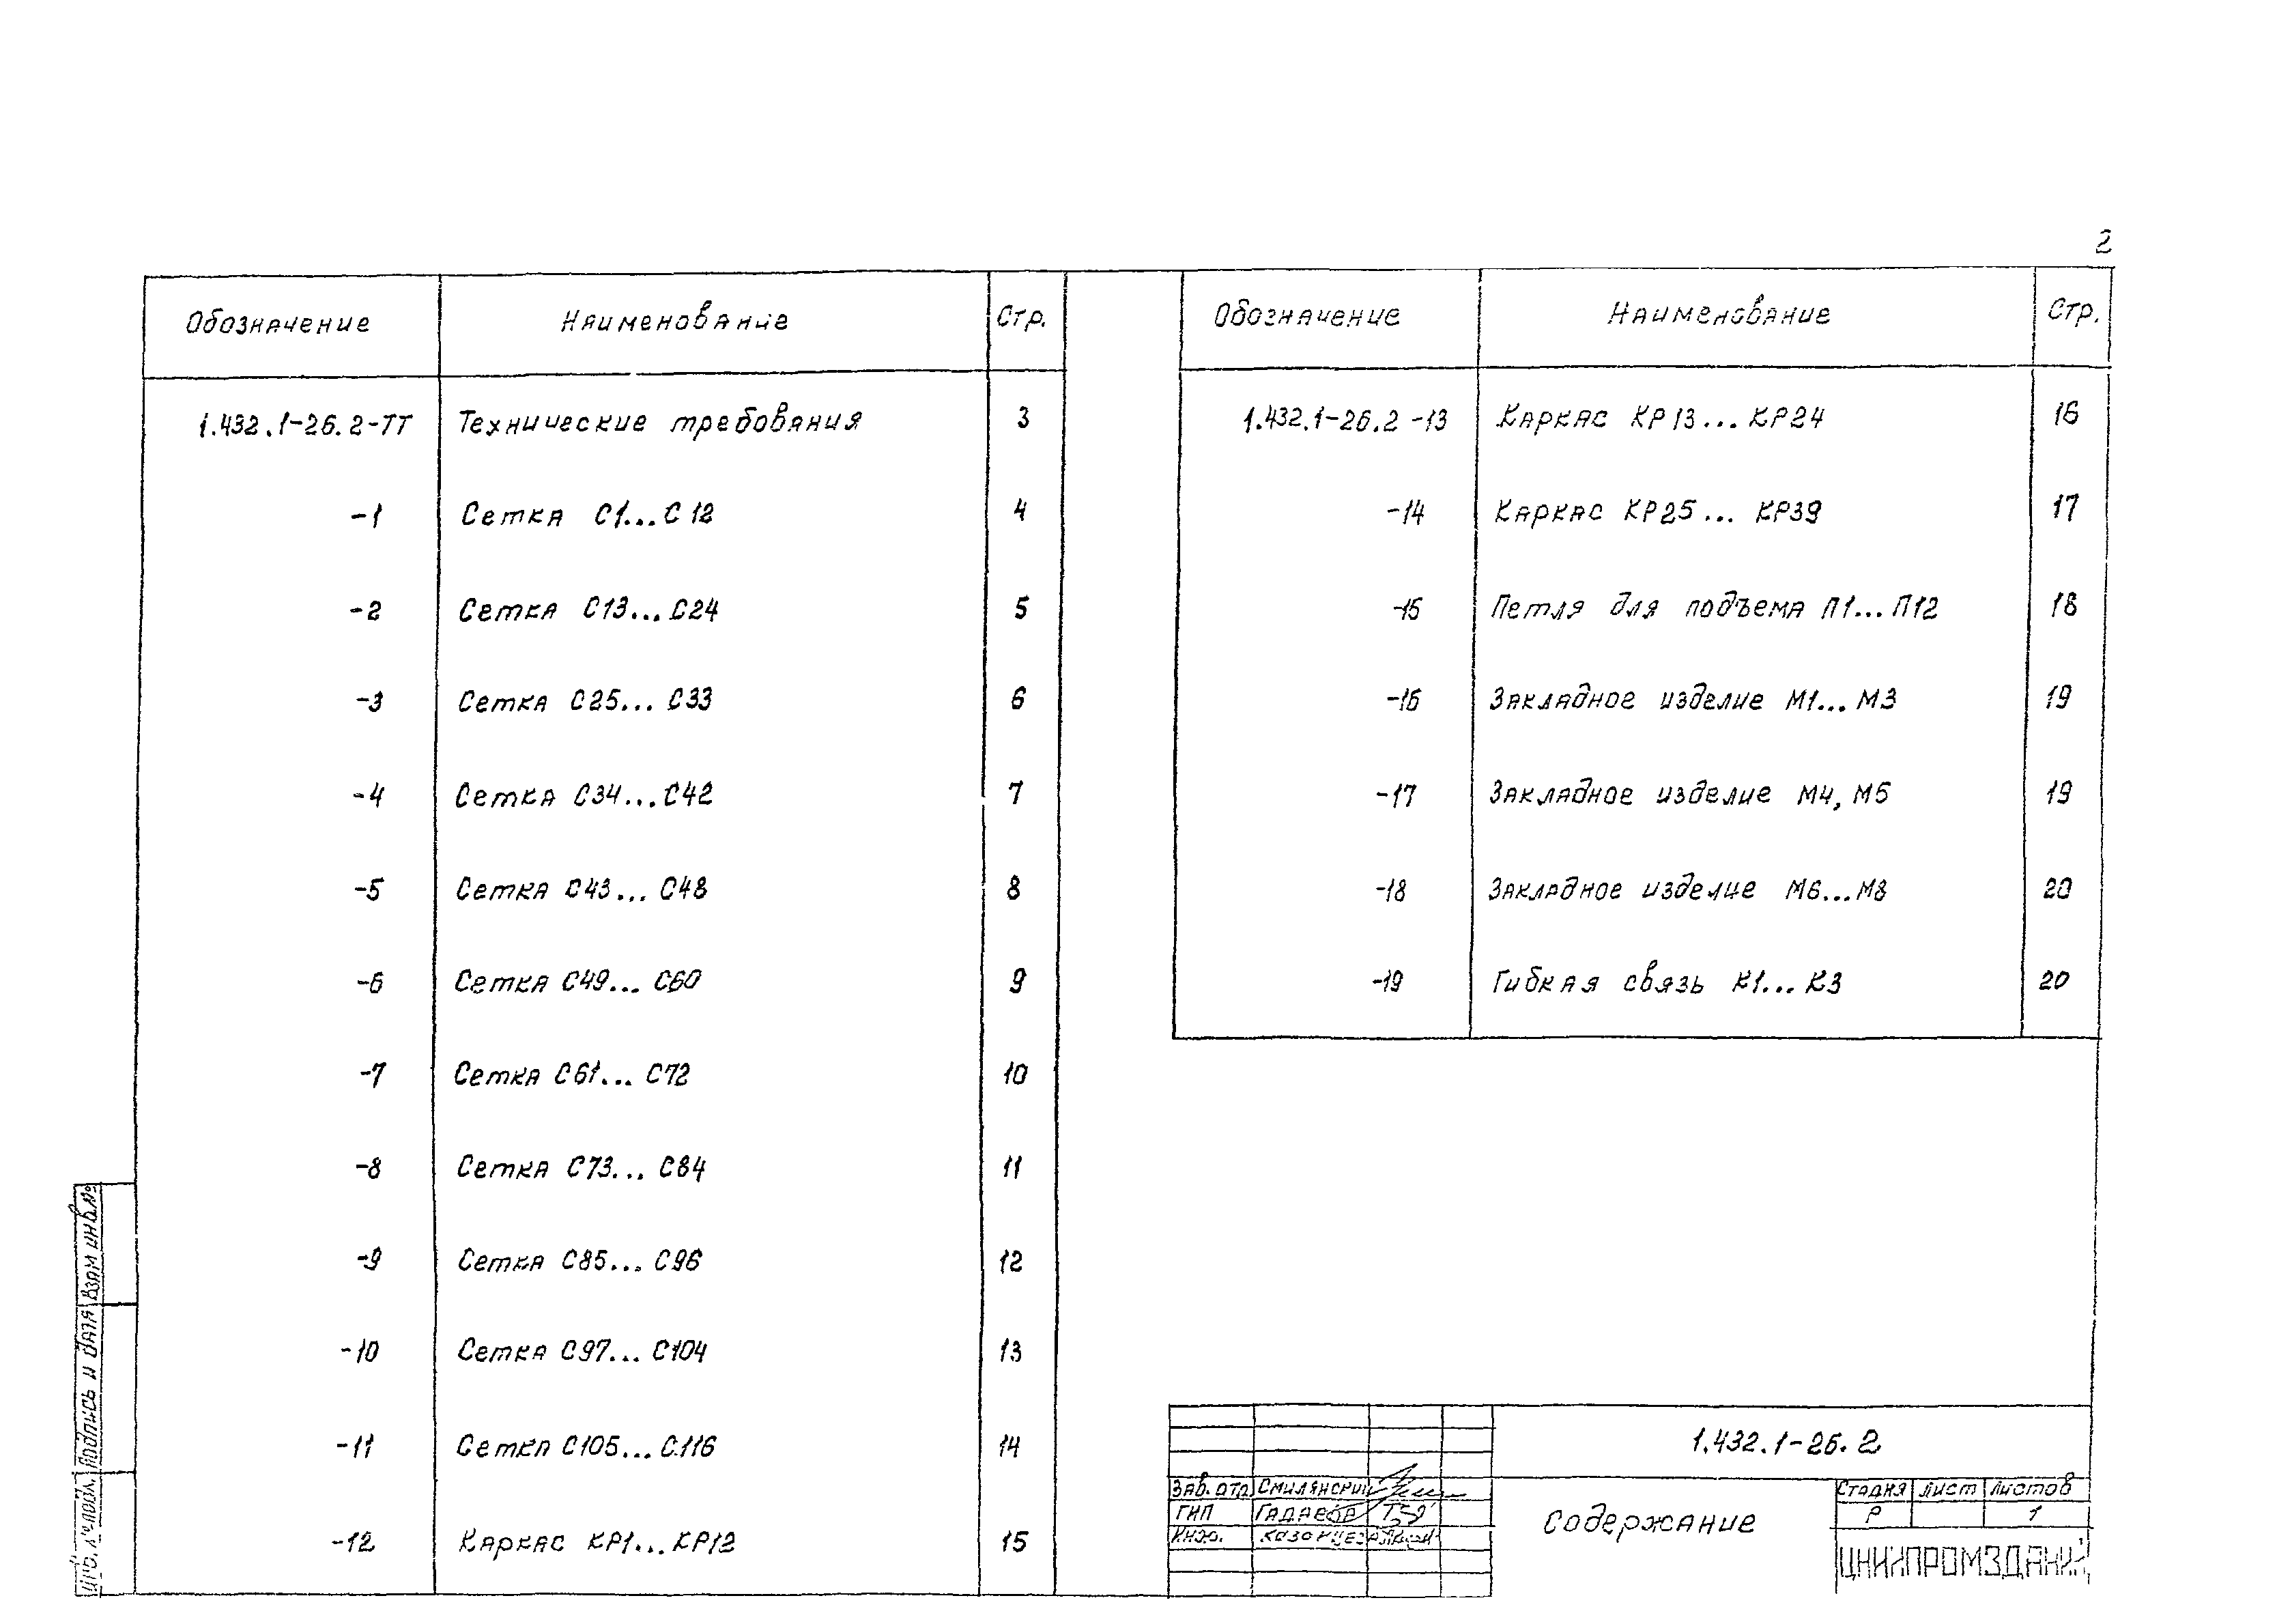 2
Обозначение Наименование Стр.
1.432.1-26.2-ТТ Технические требования 3
-1 Сетка С1...С12 4
-2 Сетка С13...С24 5
-3 Сетка С25...С33 6
-4 Сетка С34...С42 7
-5 Сетка С43...С48 8
-6 Сетка С49...С60 9
-7 Сетка С61...С72 10
-8 Сетка С73...С84 11
-9 Сетка С85...С96 12
-10 Сетка С97...С104 13
-11 Сетка С105...С116 14
-12 Каркас КР1...КР12 15
Обозначение Наименование Стр.
1.432.1-26.2-13 Каркас КР13...КР24 16
-14 Каркас КР25...КР39 17
-15 Петля для подъема П1...П12 18
-16 Закладное изделие М1...М3 19
-17 Закладное изделие М4, М5 19
-18 Закладное изделие М6...М8 20
-19 Гибкая связь К1...К3 20
1.432.1-26.2
Зав. отд. Смилянский
ГИП
Инж.
содержание
Стадия Лист Листов
Р 1
ЦНИИПРОМЗДАНИЙ
Инв. № подл. Подпись и дата Взам инв. №